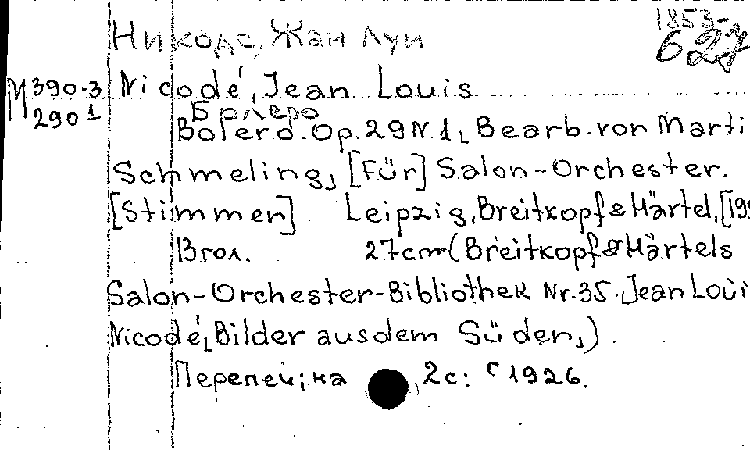 Никодэ, Жан Луи
1853-
627
M 390-3
2901
Nicodé, Jean Louis
Болеро
Bolero. Op. 29 N. 1, Bearb. von Marti
Schmeling, [Für] Salon-Orchester.
[Stimmen] Leipzig, Breitkopf & Härtel, [19
13 гол. 27cm (Breitkopf & Härtels
Salon-Orchester-Bibliothek Nr. 35. Jean Loui
Nicodé, Bilder aus dem Süden,)
2c: 1926.